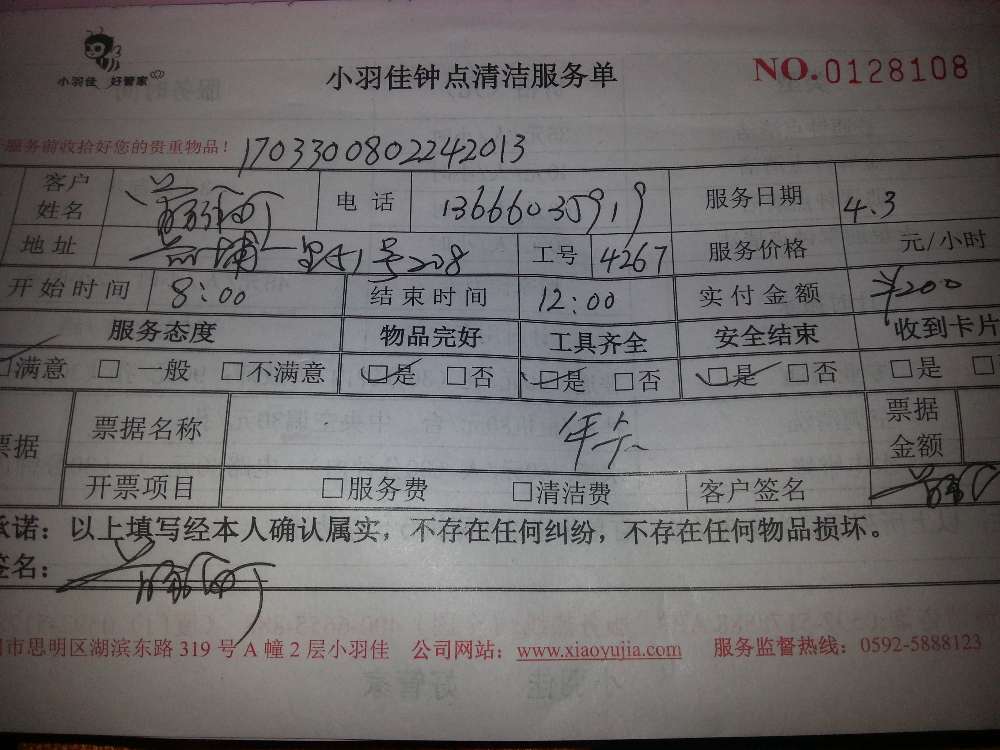 小羽佳 好管家
小羽佳钟点清洁服务单
NO.0128108
服务前收拾好您的贵重物品！
1703300802242013
客户姓名 电话 13666035919 服务日期 4.3
地址 208 工号 4267 服务价格 元/小时
开始时间 8：00 结束时间 12：00 实付金额 ¥200
服务态度 物品完好 工具齐全 安全结束 收到卡片
☑满意 □ 一般 □不满意 ☑是 □否 ☑是 □否 ☑是 □否 □是 □
票据 票据名称 年卡 票据金额
开票项目 □服务费 □清洁费 客户签名
承诺：以上填写经本人确认属实，不存在任何纠纷，不存在任何物品损坏。
签名：
市思明区湖滨东路 319 号 A 幢 2 层小羽佳 公司网站：www.xiaoyujia.com 服务监督热线：0592-5888123